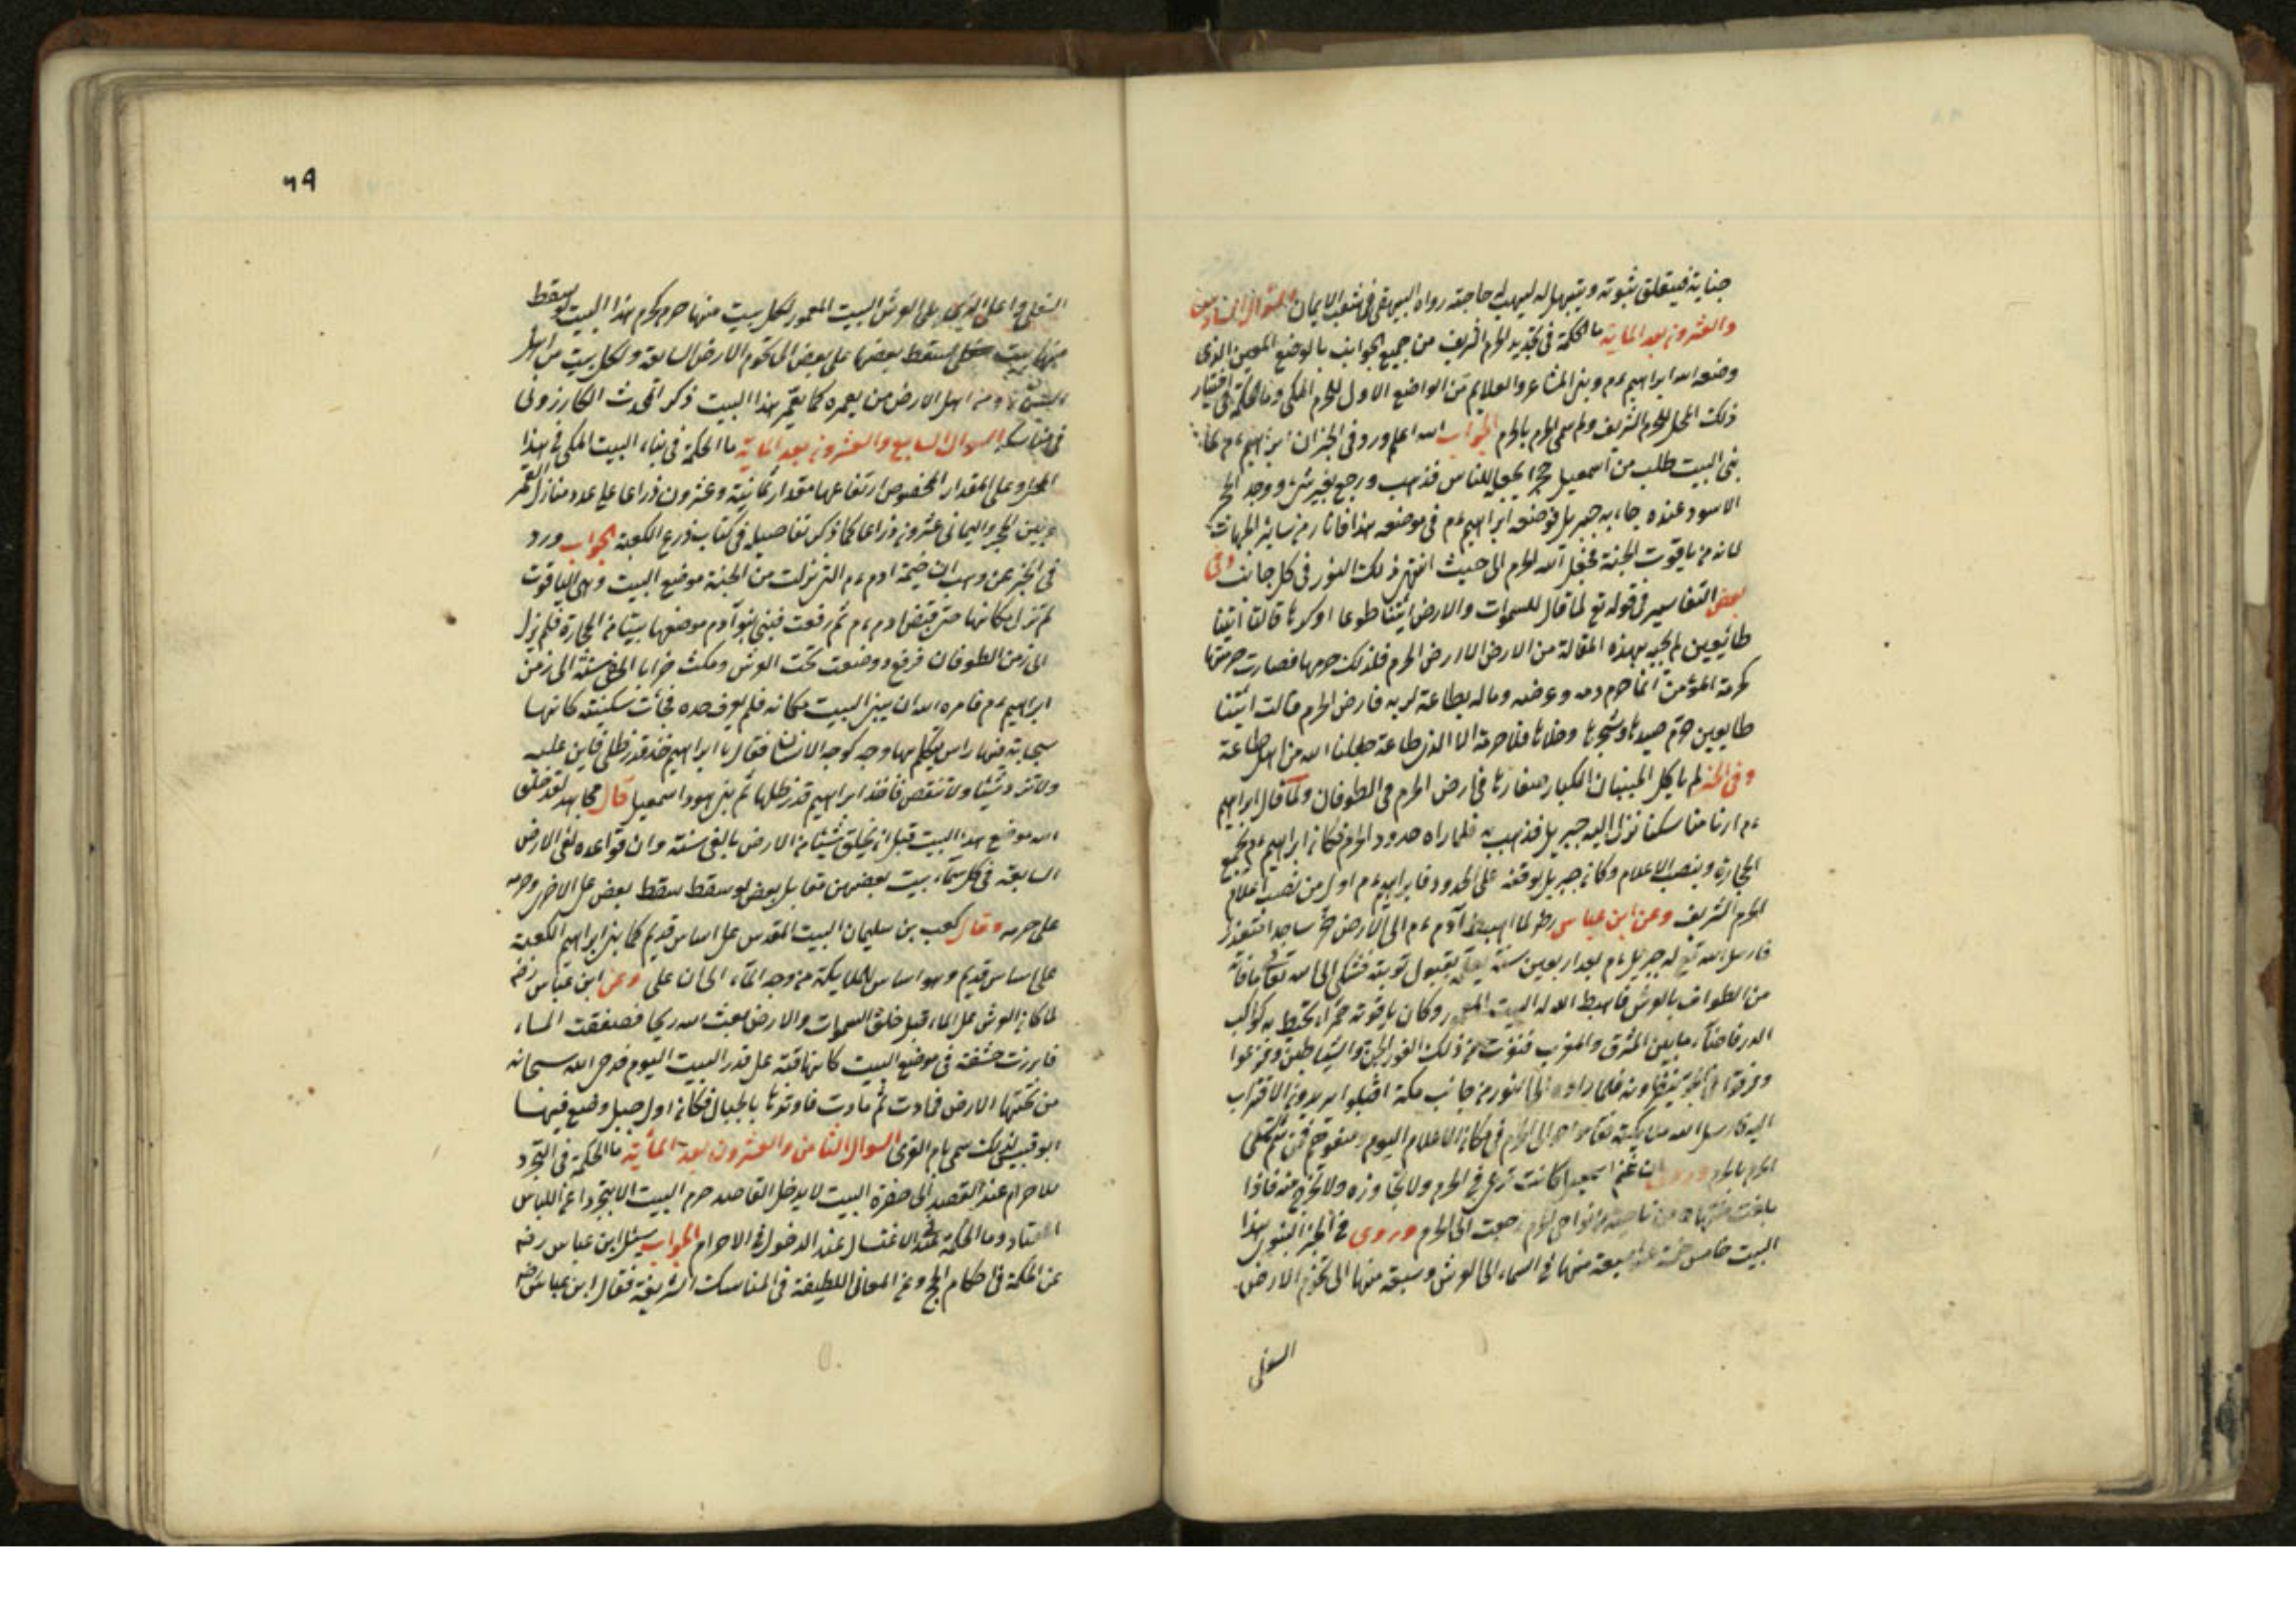 جناية فيتعلق بثوبه ويتبهل له ليهب له حاجته رواه البيهقي في شعب الايمان السؤال السادس
والعشرون بعد الماية ما الحكمة في تحديد الحرم الشريف من جميع الجوانب بالوضع المعين الذي
وضعه الله ابراهيم ءم وبين المشاعر والعلايم من الواضع الاول للحرم المكي وما الحكمة في اختيار
ذلك المحل للحرم الشريف ولم سمي الحرم بالحرم الجواب الله اعلم ورد في الخبر ان ابراهيم ءم لما
بنى البيت طلب من اسمعيل حجرا يجعله للناس فذهب ورجع بغير شيء ووجد الحجر
الاسود عنده جاء به جبريل فوضعه ابراهيم ءم في موضعه هذا فانار من ساير الجهات
لانه من ياقوت الجنة فجعل الله الحرم الى حيث انتهى ذلك النور في كل جانب وفي
بعض التفاسير في قوله تع لما قال للسموات والارض ائتيا طوعا او كرها قالتا اتينا
طائعين لم يجبه بهذه المقالة من الارض الا ارض الحرم فلذلك حرمها فصارت حرمتها
كحرمة المؤمن انما حرم دمه وعرضه وماله بطاعة لربه فارض الحرم قالت اتينا
طايعين حرم صيدها وشجرها وخلاها فلا حرمة الا لذي طاعة جعلنا الله من اهل طاعة
وفي الخبر لم ياكل الحيتان الكبار صغارها في ارض الحرم في الطوفان ولما قال ابراهيم
ءم ارنا مناسكنا نزل اليه جبريل فذهب به فلما راه حدود الحرم فكان ابراهيم ءم يجمع
الحجارة وينصب الاعلام وكان جبريل يوقفه على الحدود فابراهيم ءم اول من نصب اعلام
الحرم الشريف وعن ابن عباس رض لما اهبط آدم ءم الى الارض خر ساجدا معتذرا
فارسل الله تع له جبريل ءم بعد اربعين سنة يعلمه بقبول توبته فشكى الى الله تع ما فاته
من الطواف بالعرش فاهبط الله له البيت المعمور وكان ياقوتة حمراء تحيط به كواكب
الدر فاضآء ما بين المشرق والمغرب فنفرت من ذلك النور الجن والشياطين وفزعوا
ينظرونه فلما راوه الى النور من جانب مكة اقبلوا يريدون الاقتراب
اليه فارسل الله ملايكته فقاموا حوالى الحرم في مكان الاعلام اليوم ومنعوهم فمن ثم سمي
الحرم بالحرم وروي ان غنم اسمعيل كانت ترعى في الحرم ولا تجاوزه ولا تخرج منه فاذا
بلغت منتهاه من ناحية من نواحي الحرم رجعت الى الحرم وروى في الخبر النبوي هذا
البيت خامس خمسة عشر سبعة منها في السماء الى العرش وسبعة منها الى تخوم الارض
السفلى
٦٩
السفلى واعلى الذي يلى العرش البيت المعمور لكل بيت منها حرم كحرم هذا البيت لو سقط
منها بيت لسقط بعضها على بعض الى تخوم الارض السابعة ولكل بيت من اهل
السماء ومن اهل الارض من يعمره كما يعمر هذا البيت ذكر المحدث الكازروني
في مناسكه السوال السابع والعشرون بعد الماية ما الحكمة في بناء البيت المكي في هذا
المحل وعلى المقدار المخصوص ارتفاعها مقدار ثمانية وعشرون ذراعا على عدد منازل القمر
وبين الحجر واليماني عشرون ذراعا كما ذكر تفاصيله في كتاب ذرع الكعبة الجواب ورد
في الخبر عن وهب ان خيمة ادم ءم التي نزلت من الجنة موضع البيت وهي الياقوت
لم تزل مكانها حتى قبض ادم ءم ثم رفعت فبنى بنو آدم موضعها بيتا من الحجارة فلم يزل
الى زمن الطوفان فرفع ووضعت تحت العرش ومكث خرابا الفي سنة الى زمن
ابراهيم ءم فامره الله ان يبني البيت مكانه فلم يعرف حده فجأت سكينة كانها
سحابة فيها راس يتكلم لها وجه كوجه الانسان فقال يا ابراهيم خذ قدر ظلي فابن عليه
ولا تزد شيئا ولا تنقص فاخذ ابراهيم قدر ظلها ثم بنى هو واسمعيل قال مجاهد لقد خلق
الله موضع هذا البيت قبل ان يخلق شيئا من الارض بالفي سنة وان قواعده لفي الارض
السابعة في كل سماء بيت بعضهن مقابل بعض لو سقط سقط بعض على الاخر وحرمه
على حرمه وقال كعب بن سليمان البيت المقدس على اساس قديم كما بنى ابراهيم الكعبة
على اساس قديم وهو اساس الملايكة من وجه المآء الى ان على وعن ابن عباس رضه
لما كان العرش على الماء قبل خلق السموات والارض بعث الله ريحا فصفقت الماء
فابرزت حشفة في موضع البيت كانها قبة على قدر البيت اليوم فدحى الله سبحانه
من تحتها الارض فمادت ثم مادت فاوتدها بالجبال فكان اول جبل وضع فيها
ابو قبيس لذلك سمي بام القرى السوال الثامن والعشرون بعد المأية ما الحكمة في التجرد
للاحرام عند القصد الى حضرة البيت لا يدخل القاصد حرم البيت الا بتجرد عن اللباس
المعتاد وما الحكمة في الاغتسال عند الدخول في الاحرام الجواب سئل ابن عباس رضه
عن الحكمة في احكام الحج وعن المعاني اللطيفة في المناسك الشريفة فقال ابن عباس رضه